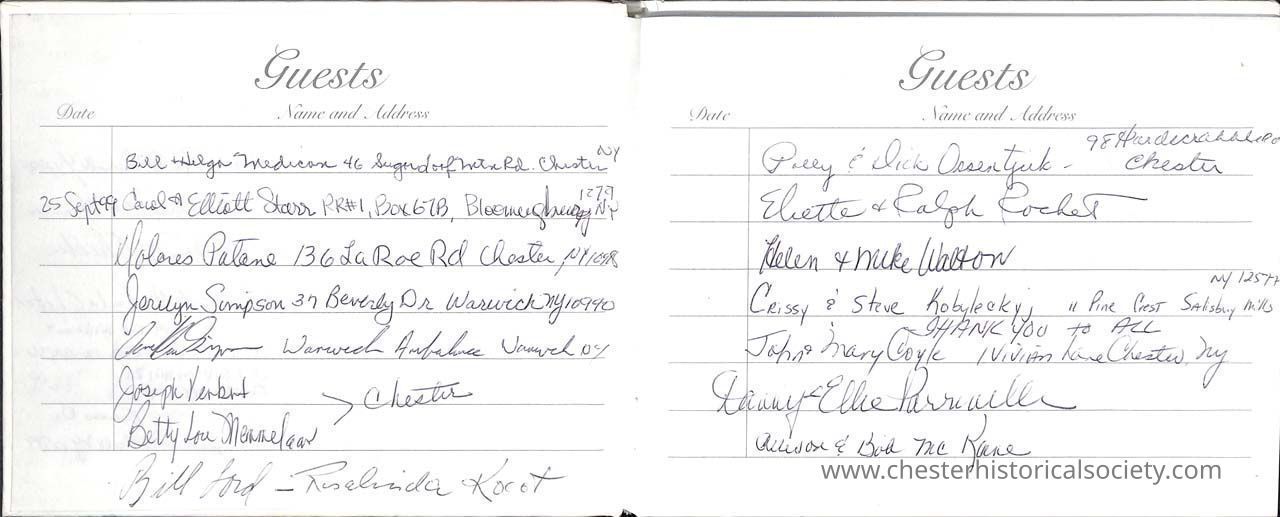 Guests
Date Name and Address
Bill + Helga Madison 46 Sugarloaf Mtn Rd. Chester NY
25 Sept 99 Carol & Elliott Starr RR#1, Box 67B, Bloomingburg NY
Dolores Patane 136 LaRoe Rd Chester NY 10918
Jerilyn Simpson 37 Beverly Dr Warwick NY 10990
Warwick Ambulance Warwick NY
Joseph
Chester
Betty Lou Memmelaar
Bill Ford – Rosalinda Kocot
Guests
Date Name and Address
98 Hardscrabble Rd
Polly & Dick Ossentjuk - Chester
Eliette & Ralph Rochet
Helen & Mike Walton
NY 12577
Crissy & Steve Kobylecky, 11 Pine Crest Salisbury Mills
THANK YOU to ALL
John & Mary Coyle 1 Vivian Lane Chester, Ny
Danny & Ellie
Allison & Bob Mc Kane
www.chesterhistoricalsociety.com